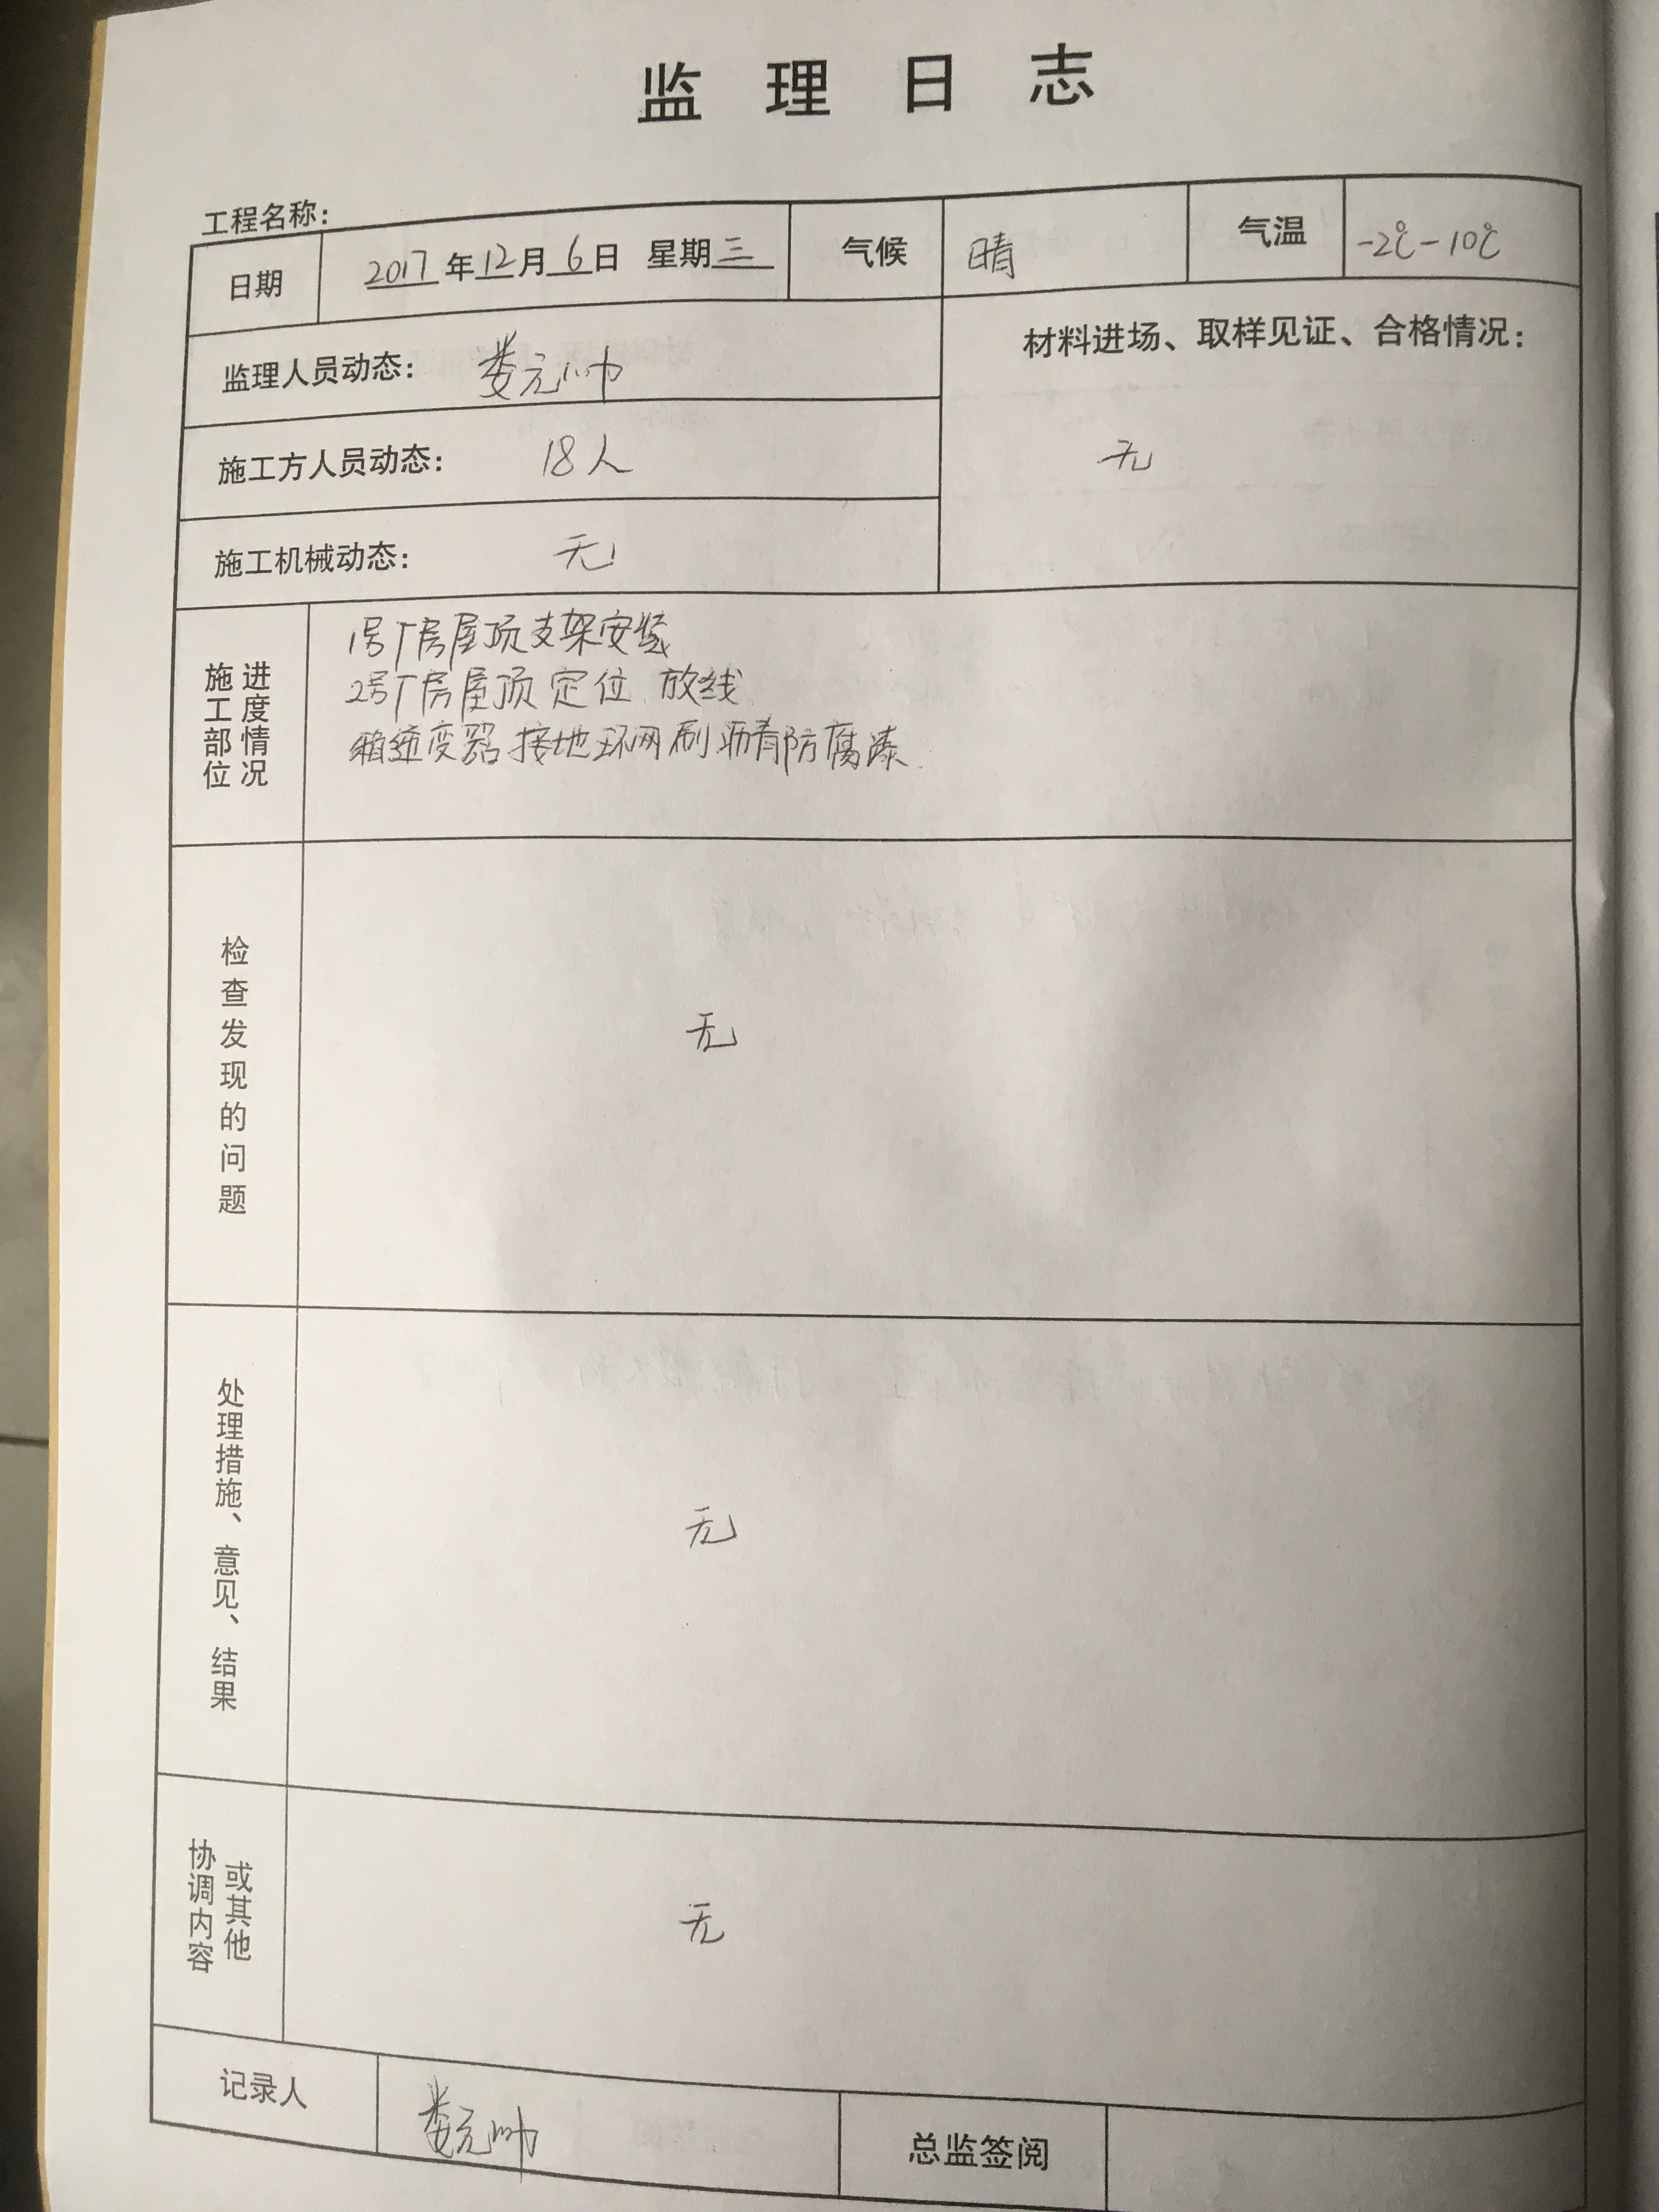 监理日志
工程名称:
日期 2017年12月6日 星期三 气候 晴 气温 -2℃-10℃
监理人员动态: 娄元帅
材料进场、取样见证、合格情况:
无
施工方人员动态: 18人
施工机械动态: 无
施工部位
进度情况
1号厂房屋顶支架安装
2号厂房屋顶定位 放线
箱逆变器接地环网刷沥青防腐漆
检查发现的问题
无
处理措施、意见、结果
无
协调内容
或其他
无
记录人 娄元帅 总监签阅